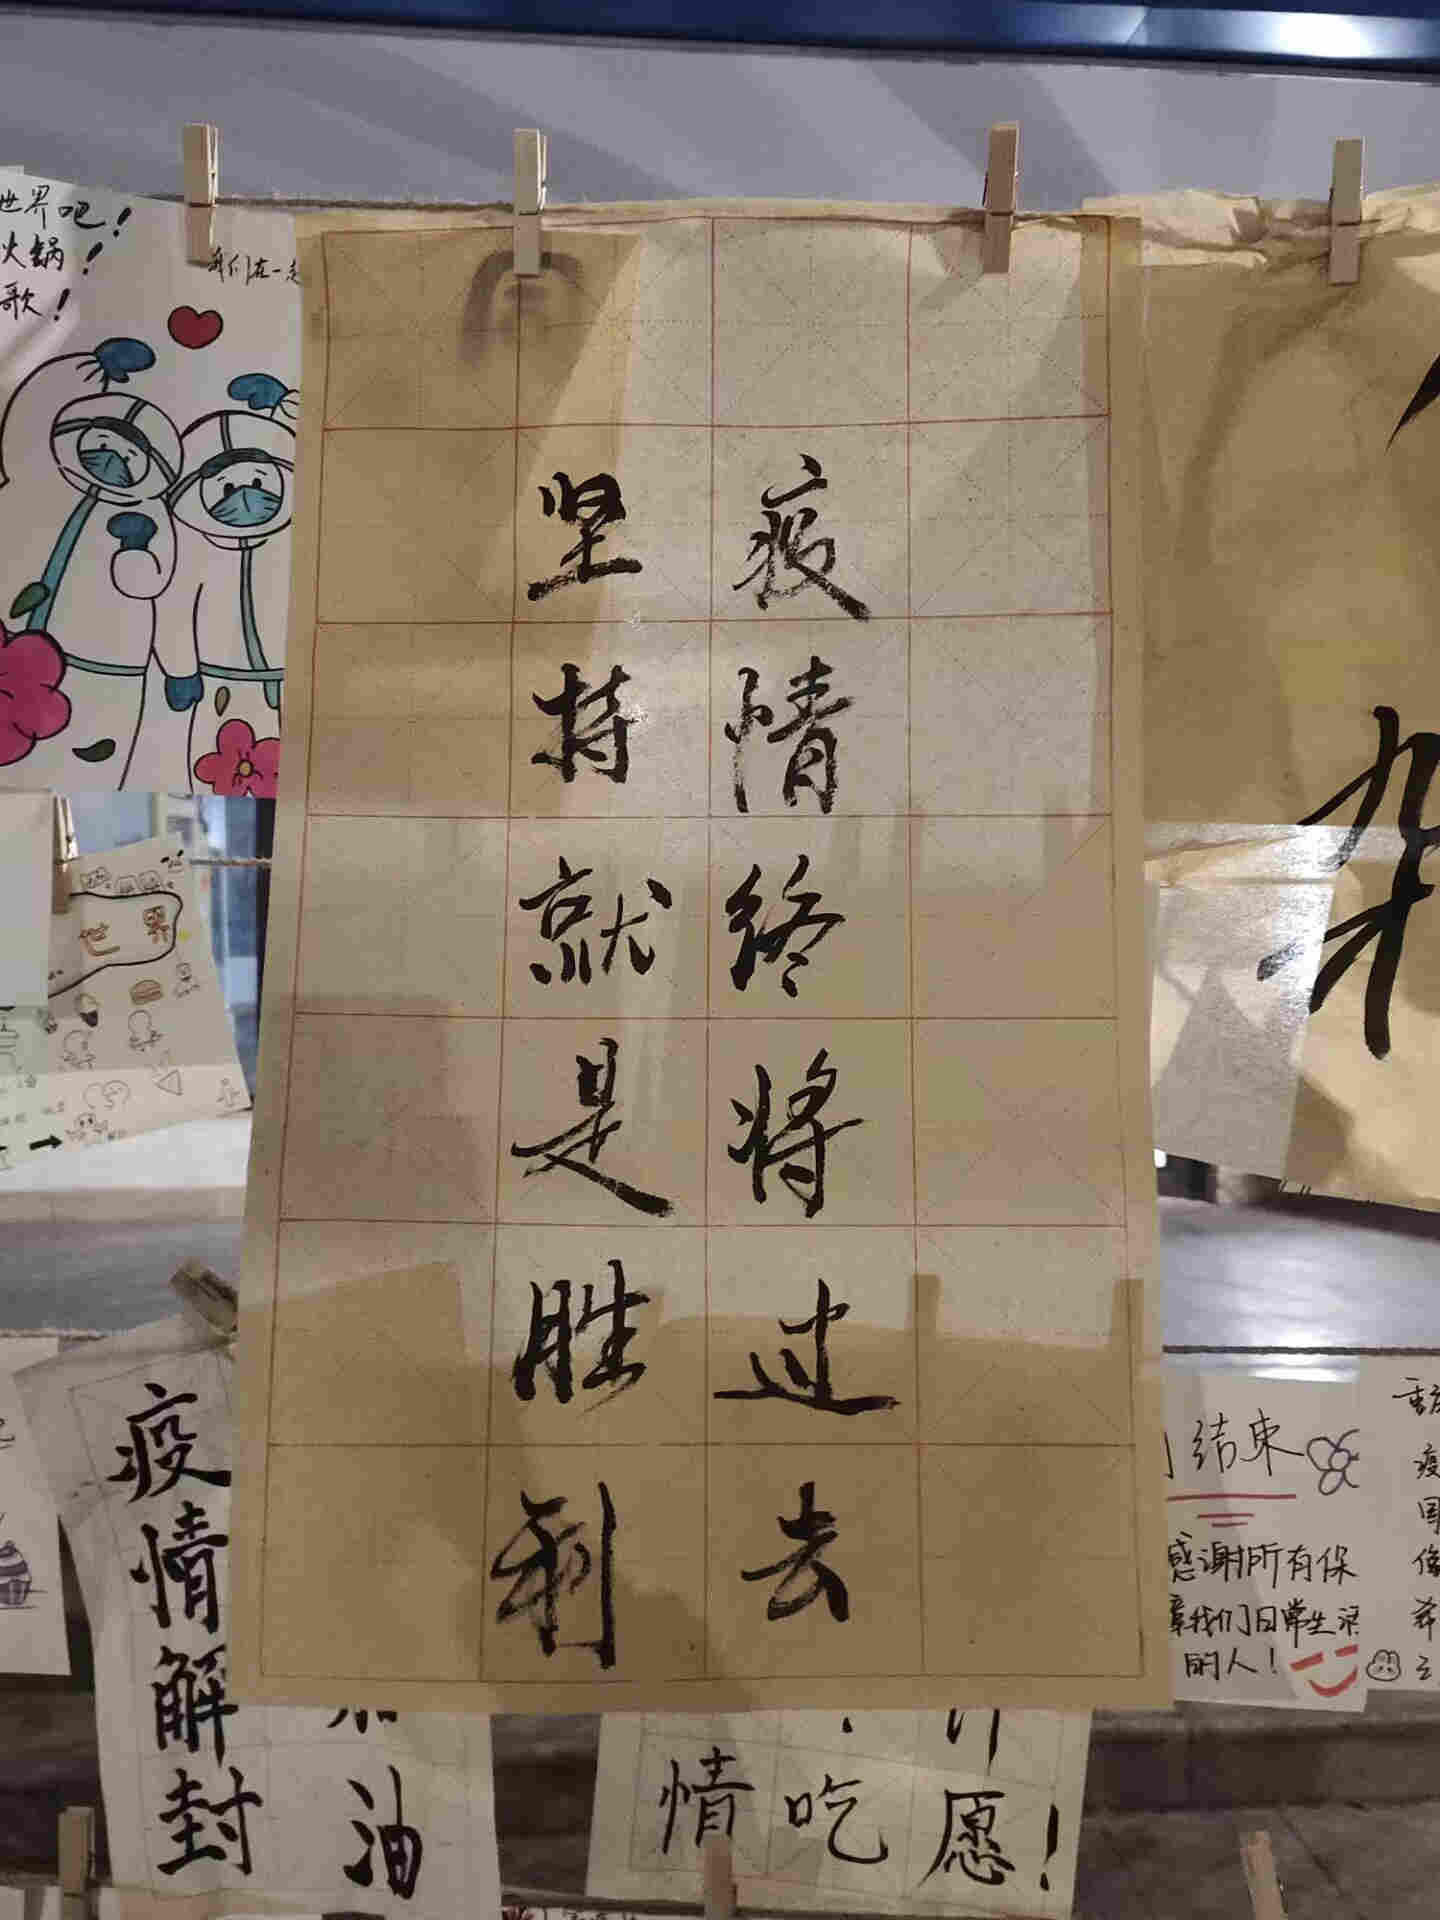 疫情终将过去
坚持就是胜利
世界吧！
火锅！
歌！
我们在一起
世界
疫情解封
油
情
吃
愿！
结束
感谢所有保
障我们日常生活
的人！